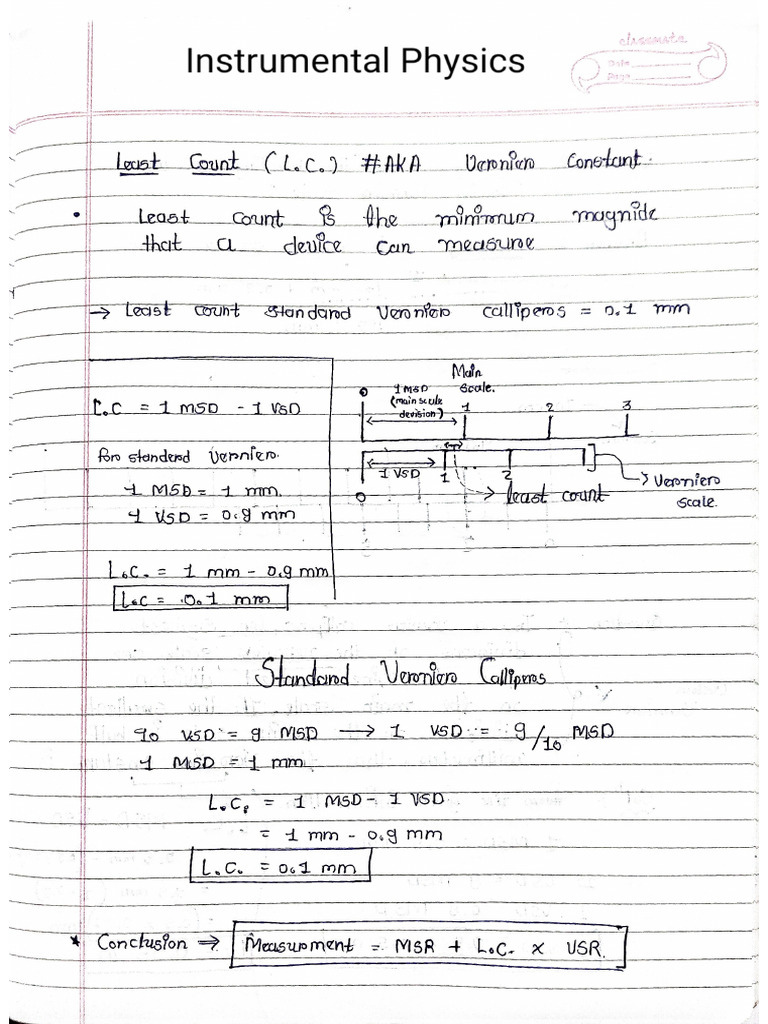 Instrumental Physics
classmate
Date
Page
Least Count (L.C.) #AKA Vernier Constant.
• Least count is the minimum magnide
that a device can measure
→ Least count standard Vernier callipers = 0.1 mm
L.C = 1 MSD - 1 VSD
for standerd Vernier.
1 MSD = 1 mm.
1 VSD = 0.9 mm
L.C. = 1 mm - 0.9 mm
L.C = 0.1 mm
Main
Scale.
0 1 MSD
(main scale
devision)
1 2 3
1 VSD
0 1 2
→ least count
→ Vernier
scale.
Standard Vernier Callipers
10 VSD = 9 MSD → 1 VSD = 9/10 MSD
1 MSD = 1 mm
L.C. = 1 MSD - 1 VSD
= 1 mm - 0.9 mm
L.C. = 0.1 mm
* Conclusion → Measurment = MSR + L.C. × VSR.